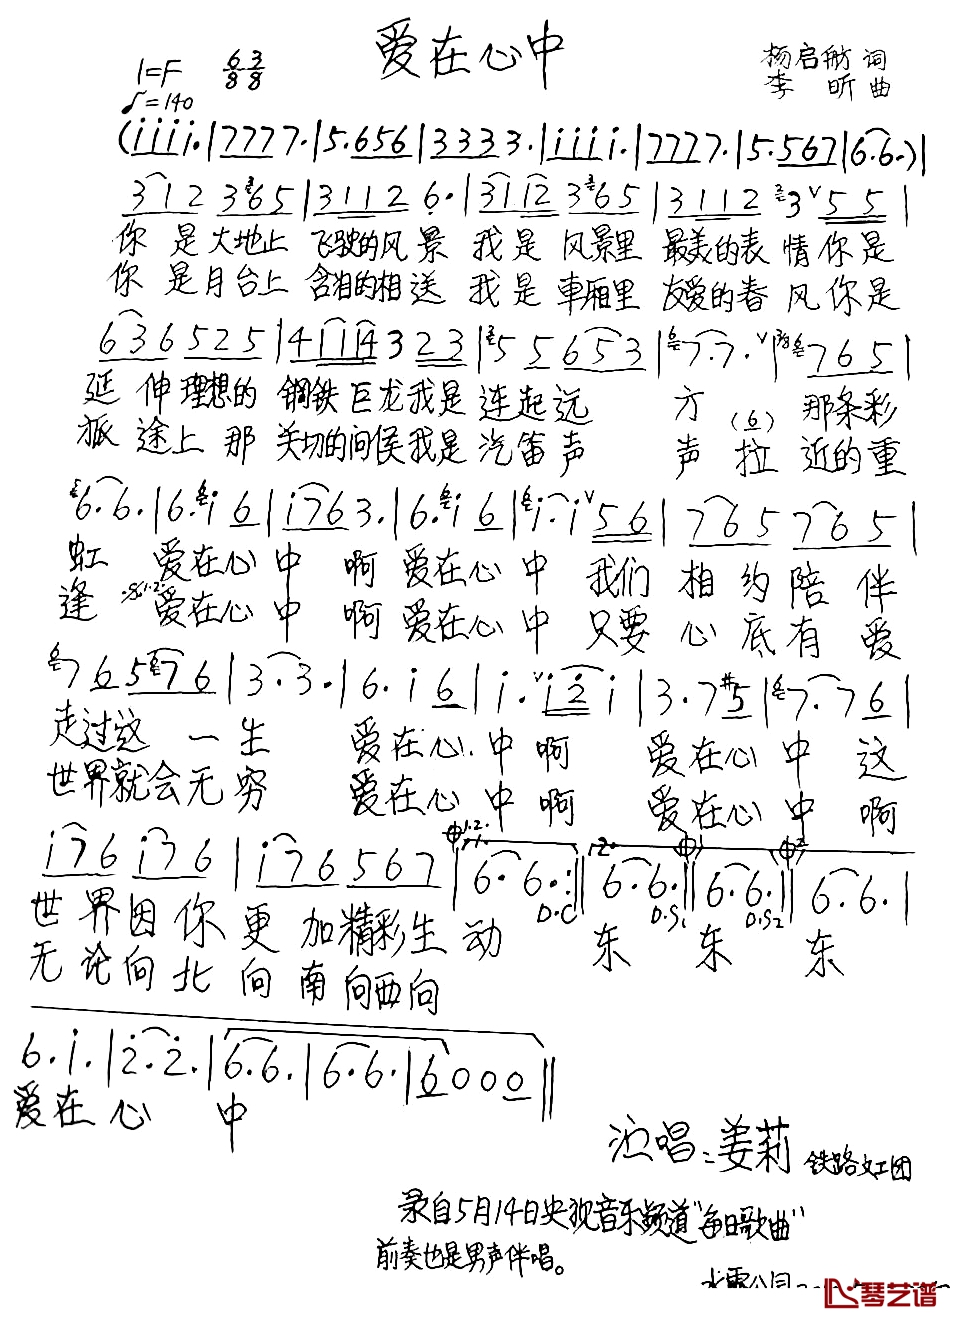 爱在心中
1=F 6/8 3/8
♩=140
杨启舫 词
李 昕 曲
(i i i i.|7 7 7 7.|5. 6 5 6|3 3 3 3.|i i i i.|7 7 7 7.|5. 5 6 7|6. 6.)|
3 1 2 3 6 5|3 1 1 2 6.|3 1 1 2 3 6 5|3 1 1 2 3 5 5|
你 是 大地上 飞驶的风 景 我 是 风景里 最美的表 情 你 是
你 是 月台上 含泪的相 送 我 是 車厢里 友爱的春 风 你 是
6 3 6 5 2 5|4 1 1 1 4 3 2 3|5 5 6 5 3|7. 7.|7 6 5|
延 伸 理想的 钢铁 巨龙 我是 连起远 方 (6) 那条彩
旅 途上 那 关切的问候 我是 汽笛声 声 拉 近的重
6. 6.|6. i 6|i 7 6 3.|6. i 6|i. i 5 6|7 6 5 7 6 5|
虹 爱在心 中 啊 爱在心 中 我们 相 约 陪 伴
逢 爱在心 中 啊 爱在心 中 只要 心 底 有 爱
7 6 5 7 6|3. 3.|6. i 6|i. i 2 i|3. 7 #5|7. 7 6|
走过这 一 生 爱在心 中 啊 爱在心 中 这
世界就会无 穷 爱在心 中 啊 爱在心 中 啊
i 7 6 i 7 6|i 7 6 5 6 7|6. 6.:|6. 6.||6. 6.||6. 6.|
D.C D.S1 D.S2
世 界 因 你 更 加 精彩生 动 东 东 东
无 论 向 北 向 南 向西向
6. i.|2. 2.|6. 6.|6. 6.|6 0 0 0||
爱在 心 中
演唱:姜莉 铁路文工团
录自5月14日央视音乐频道"每日歌曲"
前奏也是男声伴唱。
琴艺谱